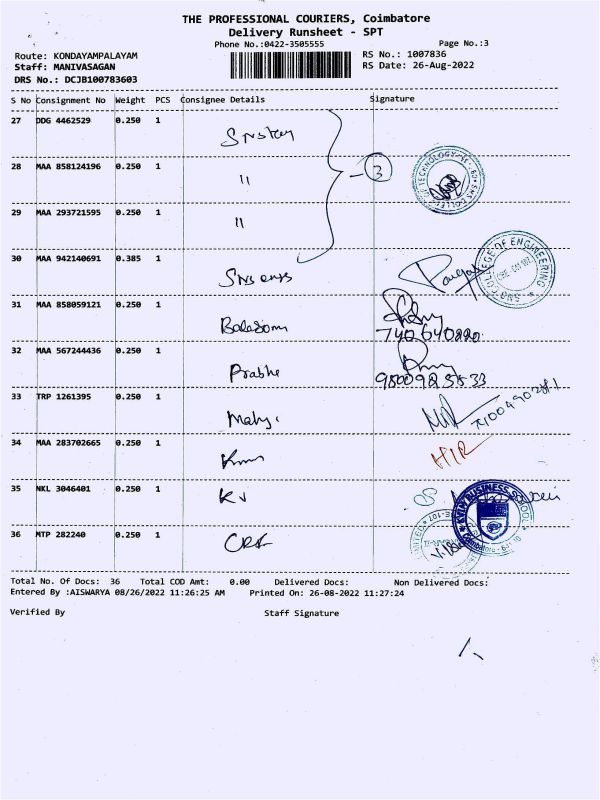 THE PROFESSIONAL COURIERS, Coimbatore
Delivery Runsheet - SPT
Phone No.:0422-3505555 Page No.:3
Route: KONDAYAMPALAYAM RS No.: 1007836
Staff: MANIVASAGAN RS Date: 26-Aug-2022
DRS No.: DCJB100783603
S No Consignment No Weight PCS Consignee Details Signature
27 DDG 4462529 0.250 1
28 MAA 858124196 0.250 1 "
3
29 MAA 293721595 0.250 1 "
30 MAA 942140691 0.385 1
COLLEGE OF ENGINEERING
31 MAA 858059121 0.250 1
32 MAA 567244436 0.250 1 Prabhu
33 TRP 1261395 0.250 1
34 MAA 283702665 0.250 1
35 NKL 3046401 0.250 1 KV
BUSINESS SCHOOL
36 MTP 282240 0.250 1
Total No. Of Docs: 36 Total COD Amt: 0.00 Delivered Docs: Non Delivered Docs:
Entered By :AISWARYA 08/26/2022 11:26:25 AM Printed On: 26-08-2022 11:27:24
Verified By Staff Signature